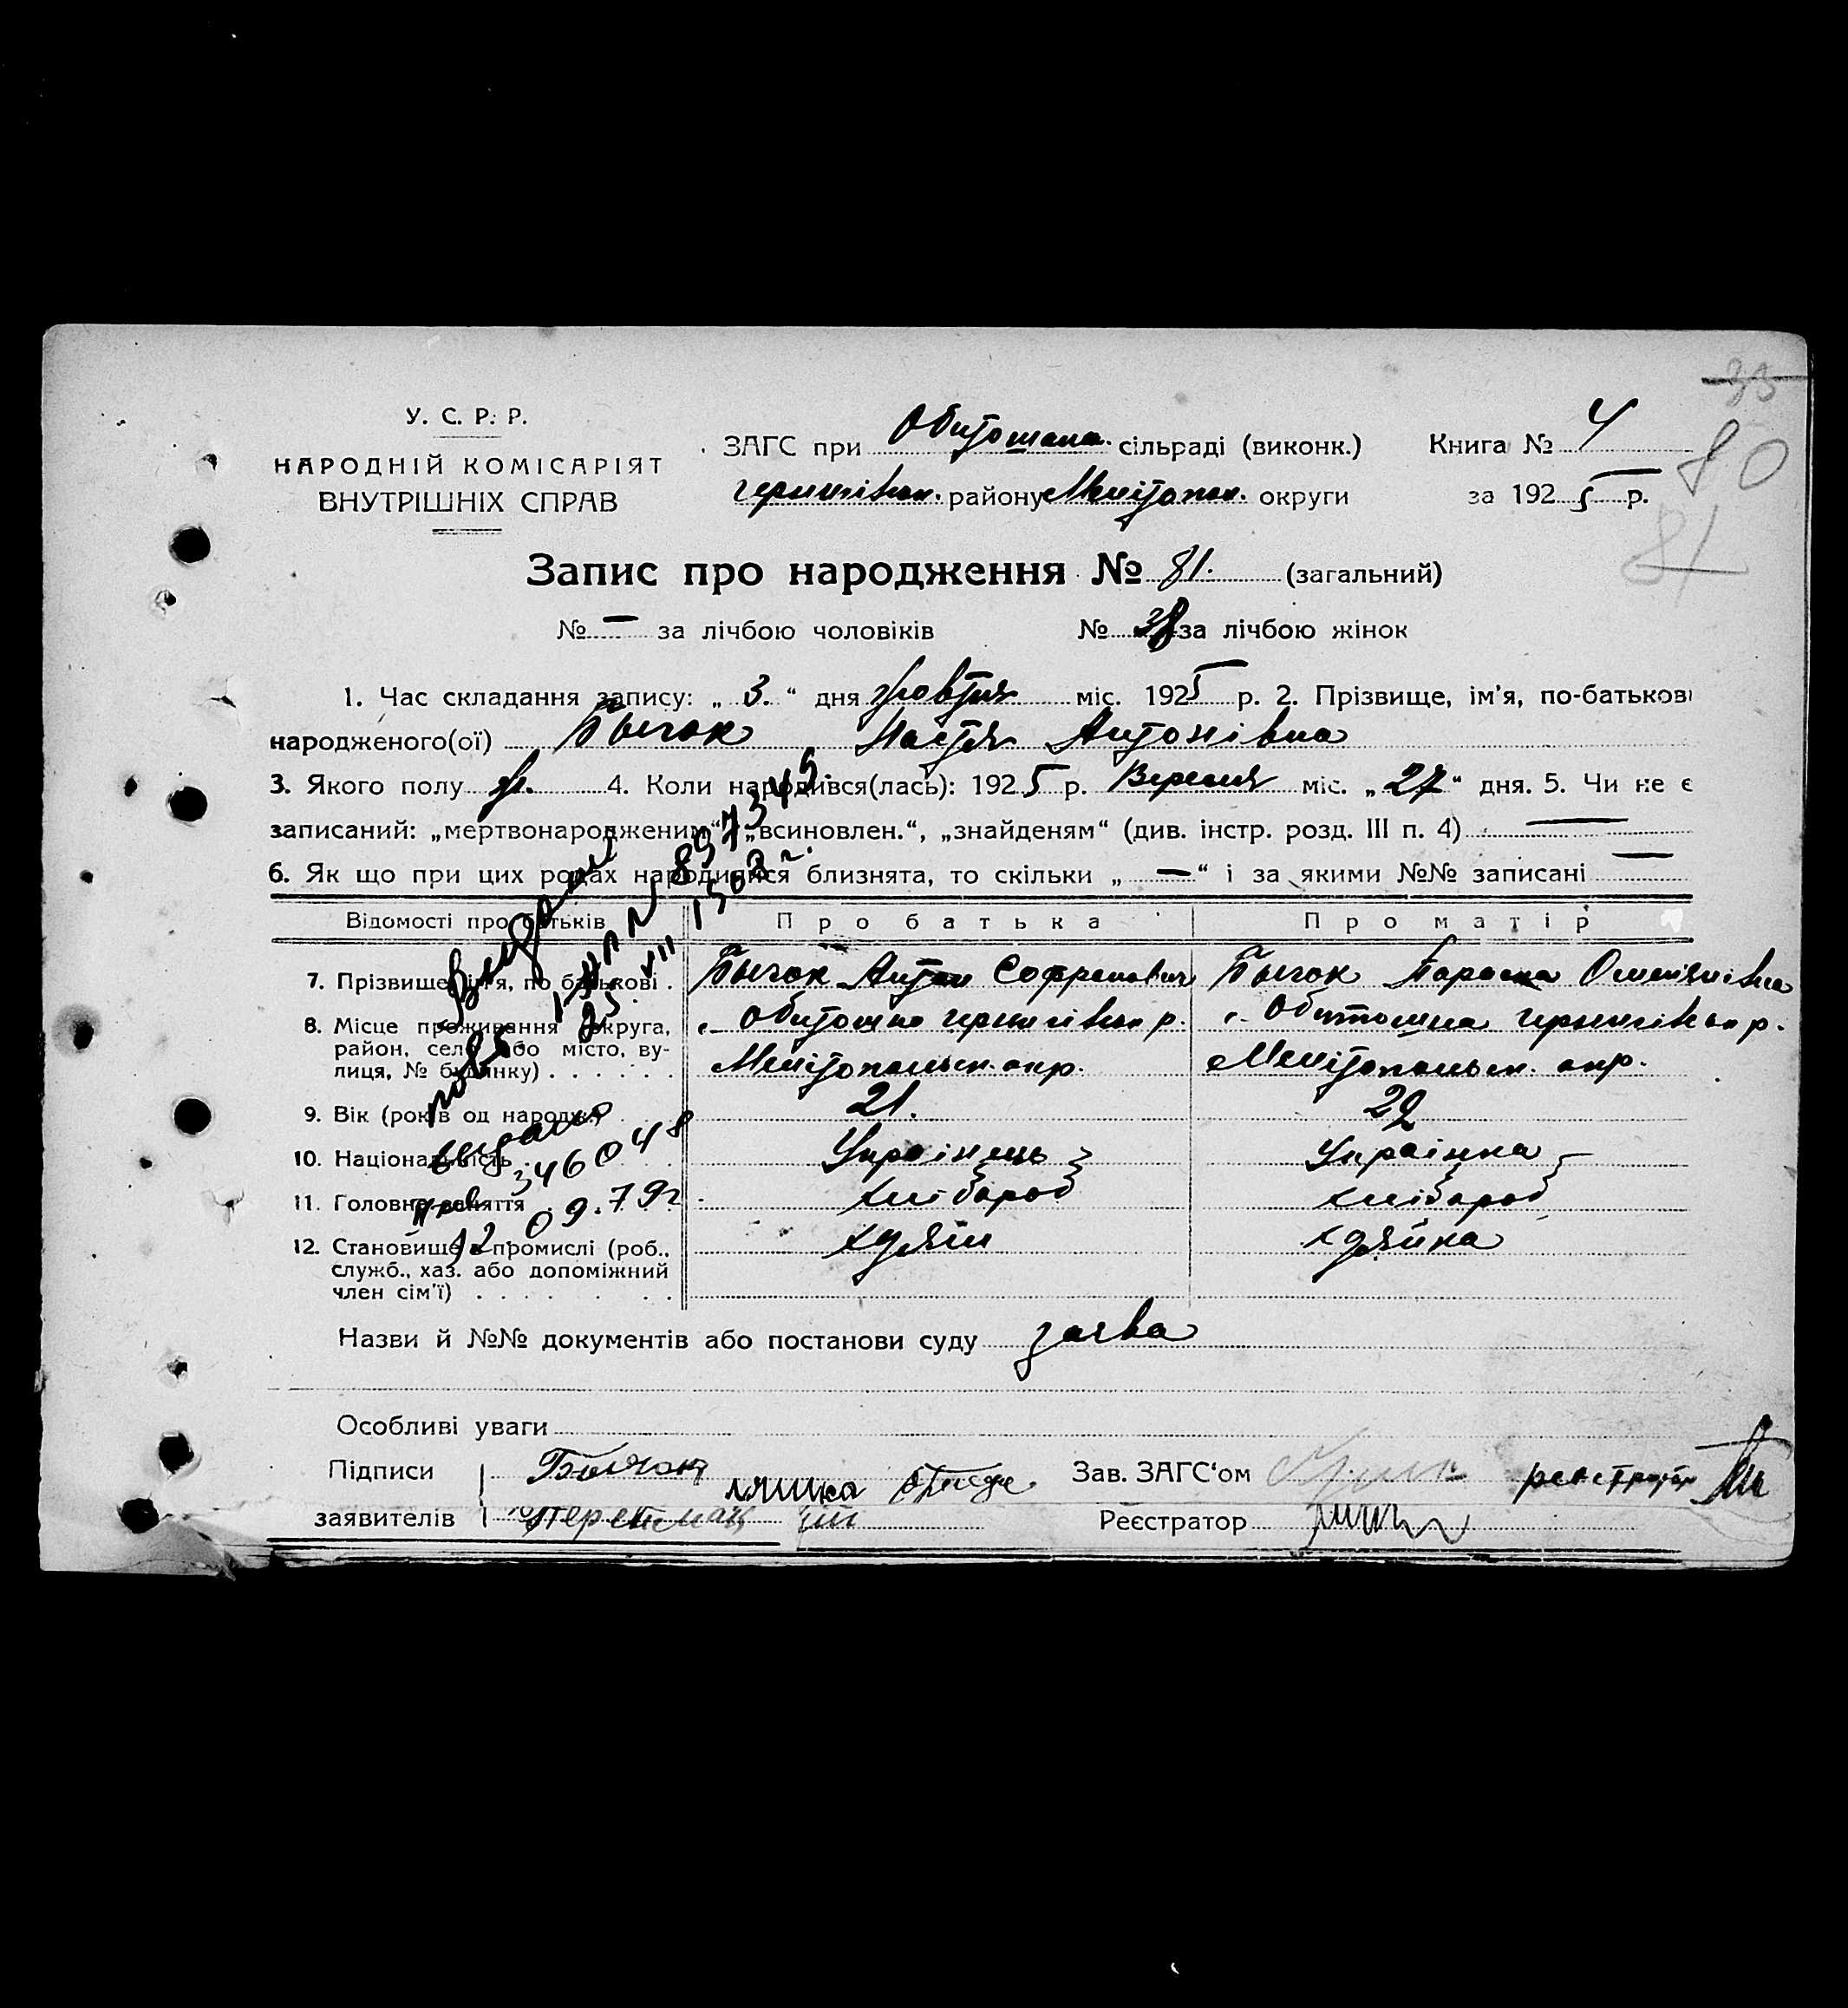 У. С. Р. Р.
НАРОДНІЙ КОМІСАРІЯТ
ВНУТРІШНІХ СПРАВ
ЗАГС при Обиточна. сільраді (виконк.) Книга № 4
району Мелітопол. округи за 1925 р.
33
80
81
Запис про народження № 81. (загальний)
№ — за лічбою чоловіків № 38 за лічбою жінок
1. Час складання запису: „ 3. “ дня жовтня міс. 1925 р. 2. Прізвище, ім'я, по-батькові
народженого(ої) Бычок Настя Антонівна
3. Якого полу ж. 4. Коли народився(лась): 1925 р. Вересня міс. „ 27 “ дня. 5. Чи не є
записаний: „мертвонародженим“, „всиновлен.“, „знайденям“ (див. інстр. розд. III п. 4) —
6. Як що при цих родах народилися близнята, то скільки „ — “ і за якими №№ записані —
Відомості про батьків Про батька Про матір
7. Прізвище, ім'я, по батькові . Бычок Антон Бычок Параска
8. Місце проживання (округа,
район, село або місто, ву-
лиця, № будинку) . . . . . . Мелітопольск. окр. Мелітопольск. окр.
9. Вік (років од народж.) 21. 22
10. Національність Українець Українка
11. Головне заняття хлібороб хлібороб
12. Становище в промислі (роб.,
служб., хаз. або допоміжний
член сім'ї) . . . . . . .
346048
12 09.79г.
Назви й №№ документів або постанови суду заява
Особливі уваги
Підписи Бычок Зав. ЗАГС'ом
заявителів Реєстратор